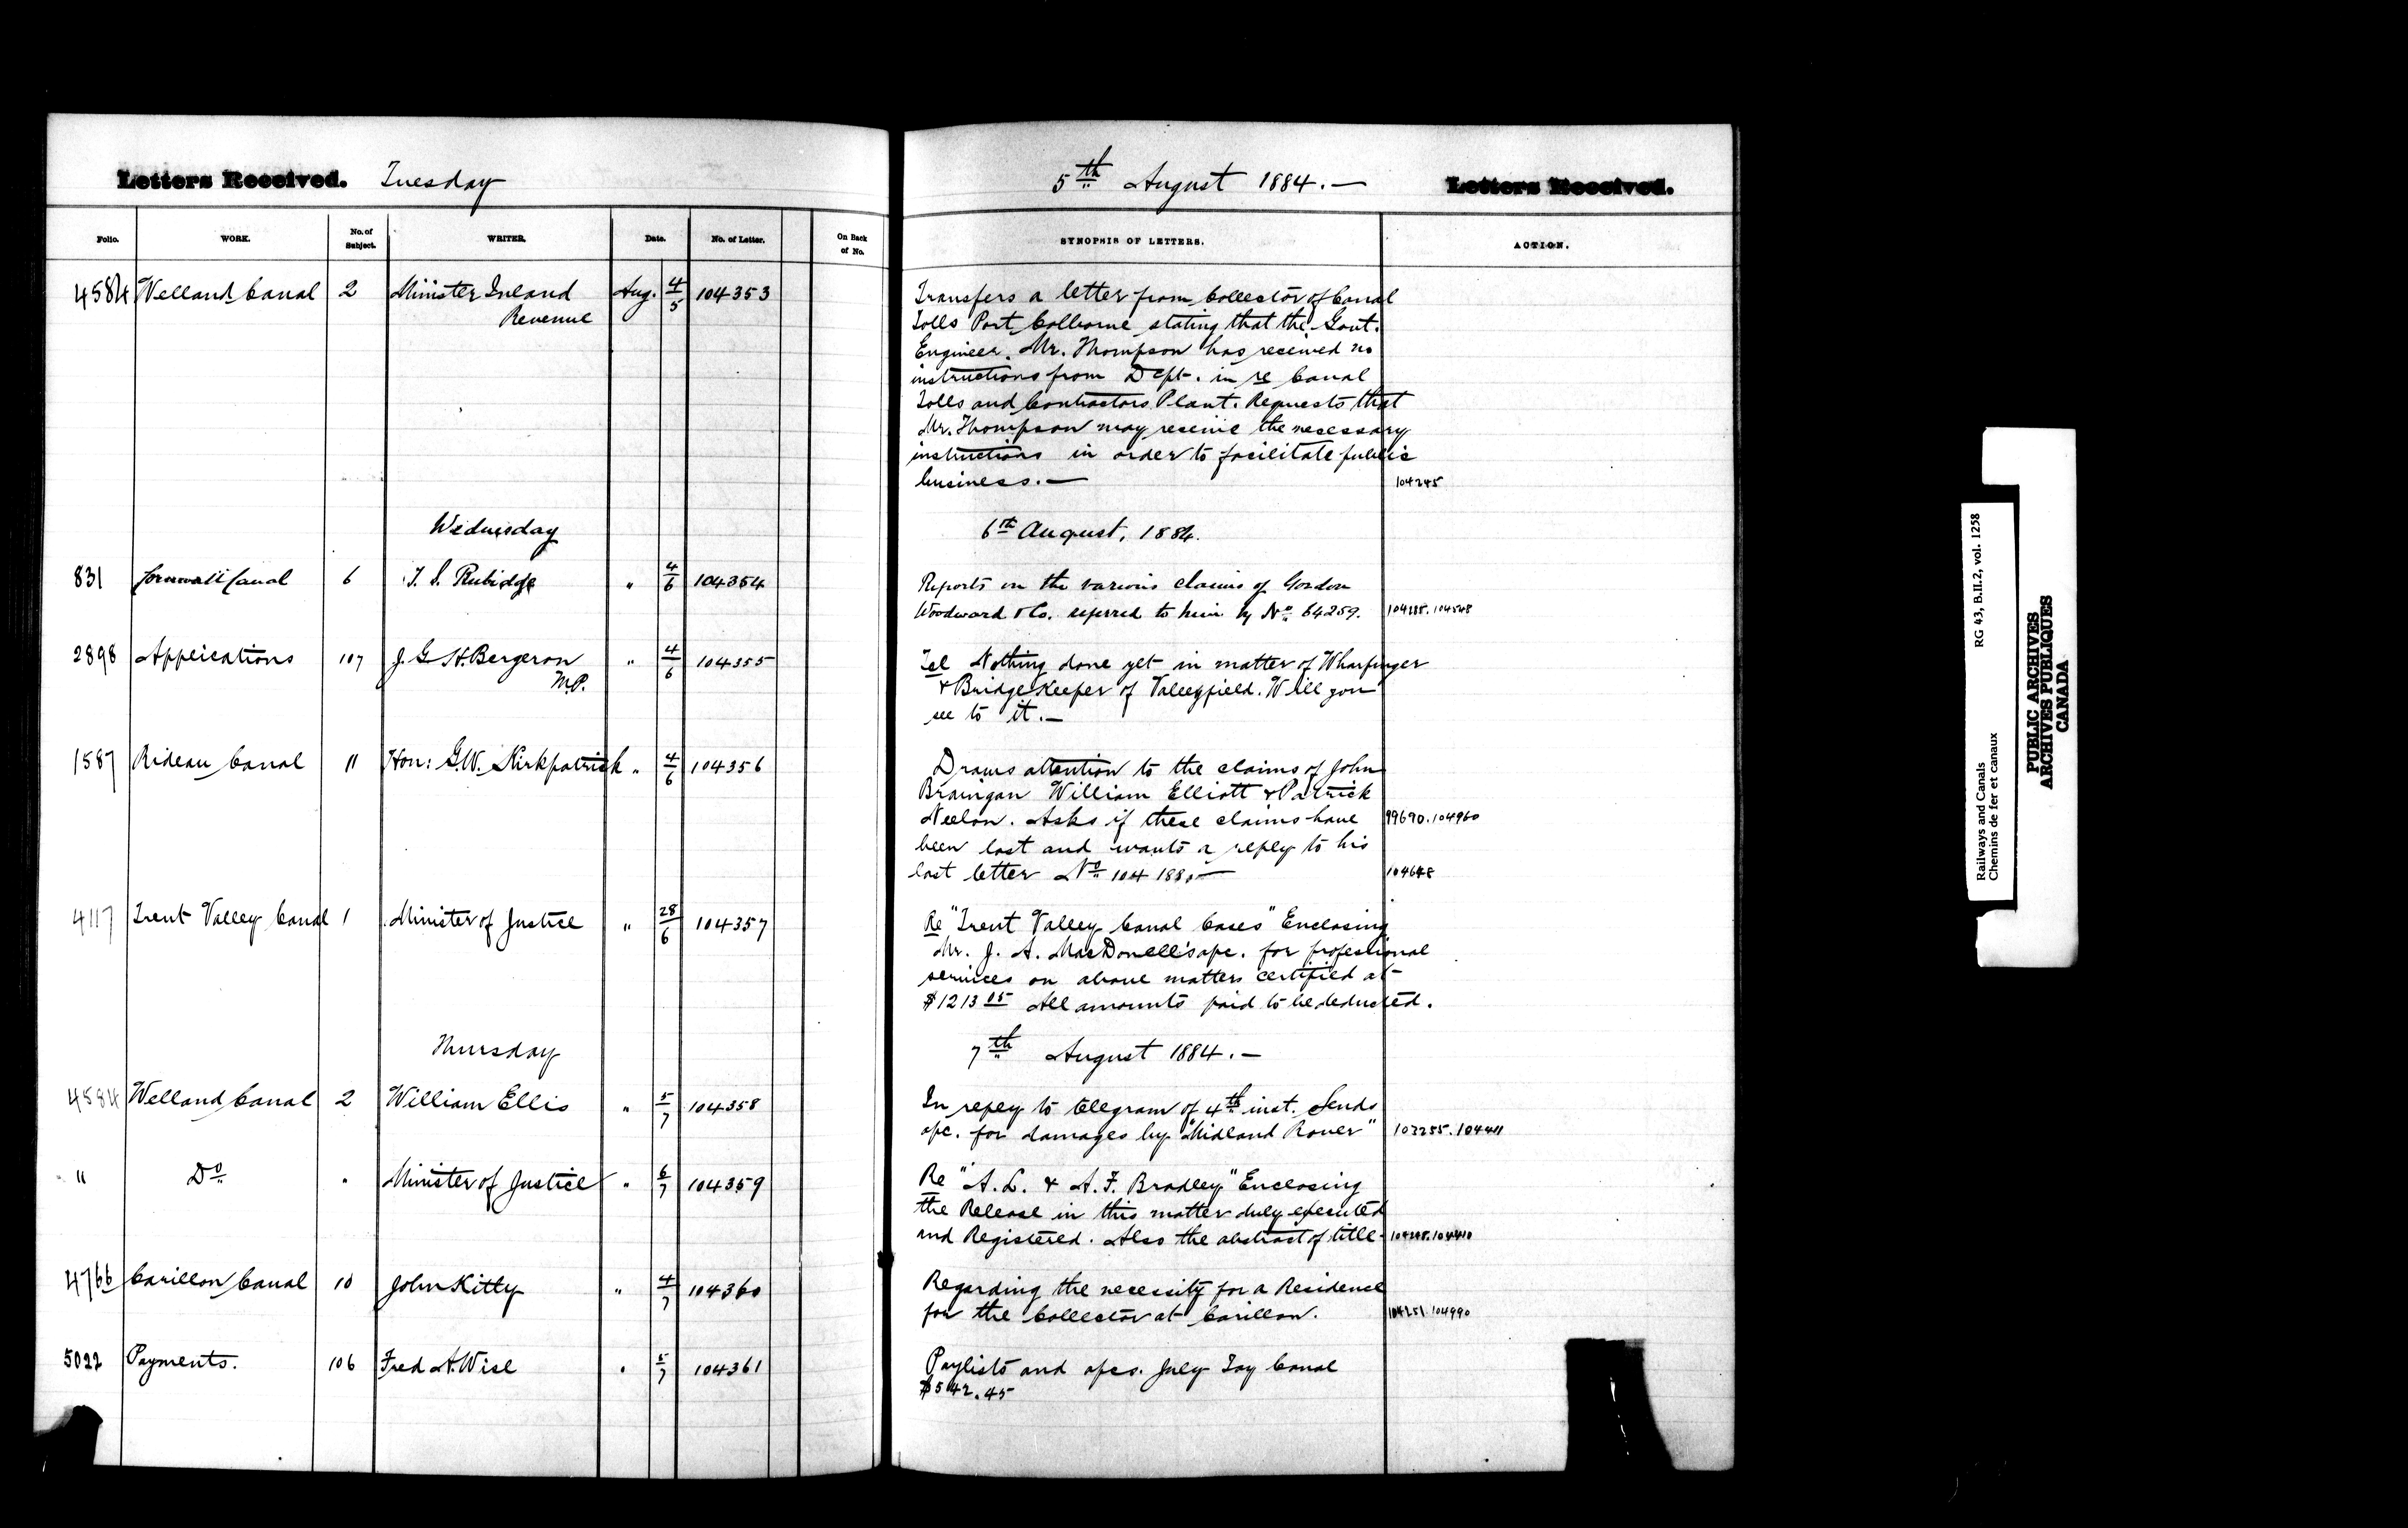 Letters Received. Tuesday
5th August 1884.—
Letters Received.
Folio. WORK. No. of Subject. WRITER. Date. No. of Letter. On Back of No. SYNOPSIS OF LETTERS. ACTION.
4584 Welland Canal 2 Minister Inland Aug. 4/5 104353
Revenue
Transfers a letter from Collector of Canal
Tolls Port Colborne stating that the Govt.
Engineer. Mr. Thompson has received no
instructions from Dept. in re Canal
Tolls and Contractors Plant. Requests that
Mr. Thompson may receive the necessary
instructions in order to facilitate public
business.— 104245
Wednesday 6th August, 1884.
831 Cornwall Canal 6 T. S. Rubidge " 4/6 104354
Reports on the various claims of Gordon
Woodward & Co. referred to him by No. 64259.
2898 Applications 107 J. G. H. Bergeron " 4/6 104355
M.P.
Tel Nothing done yet in matter of Wharfinger
& Bridge Keeper of Valleyfield. Will you
see to it.—
1587 Rideau Canal 11 Hon: G.W. Kirkpatrick " 4/6 104356
Draws attention to the claims of John
Branigan William Elliott & Patrick
Neelon. Asks if these claims have 99690.104960
been lost and wants a reply to his
last letter No 104188.— 104648
4117 Trent Valley Canal 1 Minister of Justice " 28/6 104357
Re "Trent Valley Canal Cases" Enclosing
Mr. J. A. MacDonell's apc. for professional
services on above matters certified at
$1213 05 All amounts paid to be deducted.
Thursday 7th August 1884.—
4584 Welland Canal 2 William Ellis " 5/7 104358
In reply to telegram of 4th inst. Sends
apc. for damages by "Midland Rover"
" Do " Minister of Justice " 6/7 104359
Re "A. L. & A. F. Bradley" Enclosing
the Release in this matter duly executed
and Registered. Also the abstract of title
4766 Carillon Canal 10 John Kitty " 4/7 104360
Regarding the necessity for a Residence
for the Collector at Carillon. 104251.104990
5022 Payments. 106 Fred A. Wise " 5/7 104361
Paylists and apcs. July Tay Canal
$542.45
Railways and Canals RG 43, B.II.2, vol. 1258
Chemins de fer et canaux
PUBLIC ARCHIVES
ARCHIVES PUBLIQUES
CANADA